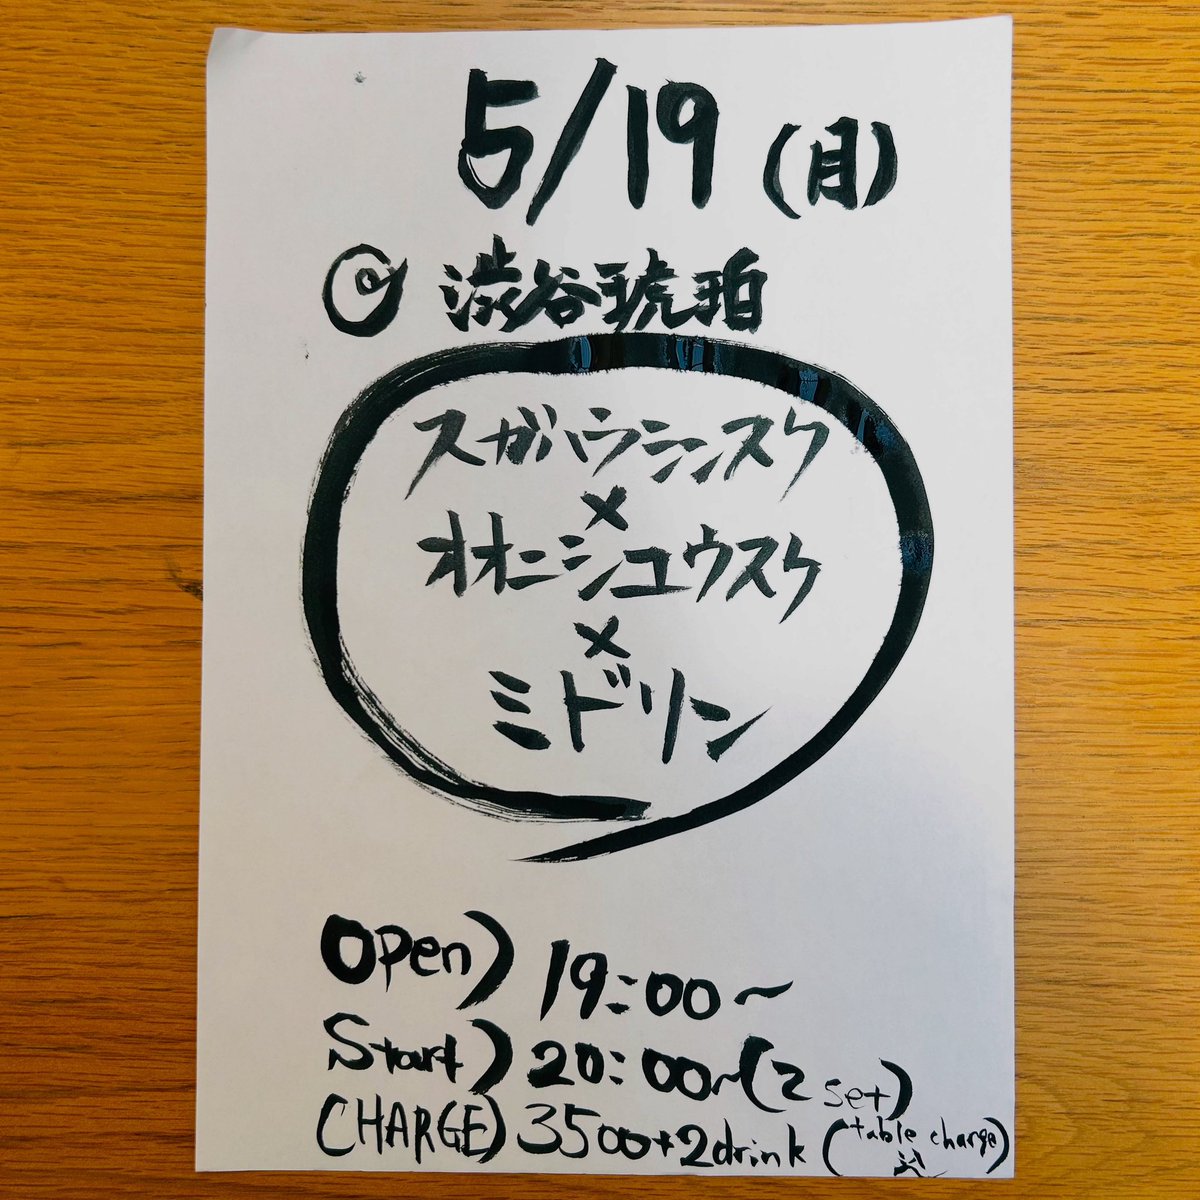 5/19 (月)
@ 渋谷琥珀
スガハラシンスケ
×
オオニシユウスケ
×
ミドリン
Open) 19:00〜
Start) 20:00〜(2 set)
CHARGE) 3500+2drink (table charge込)